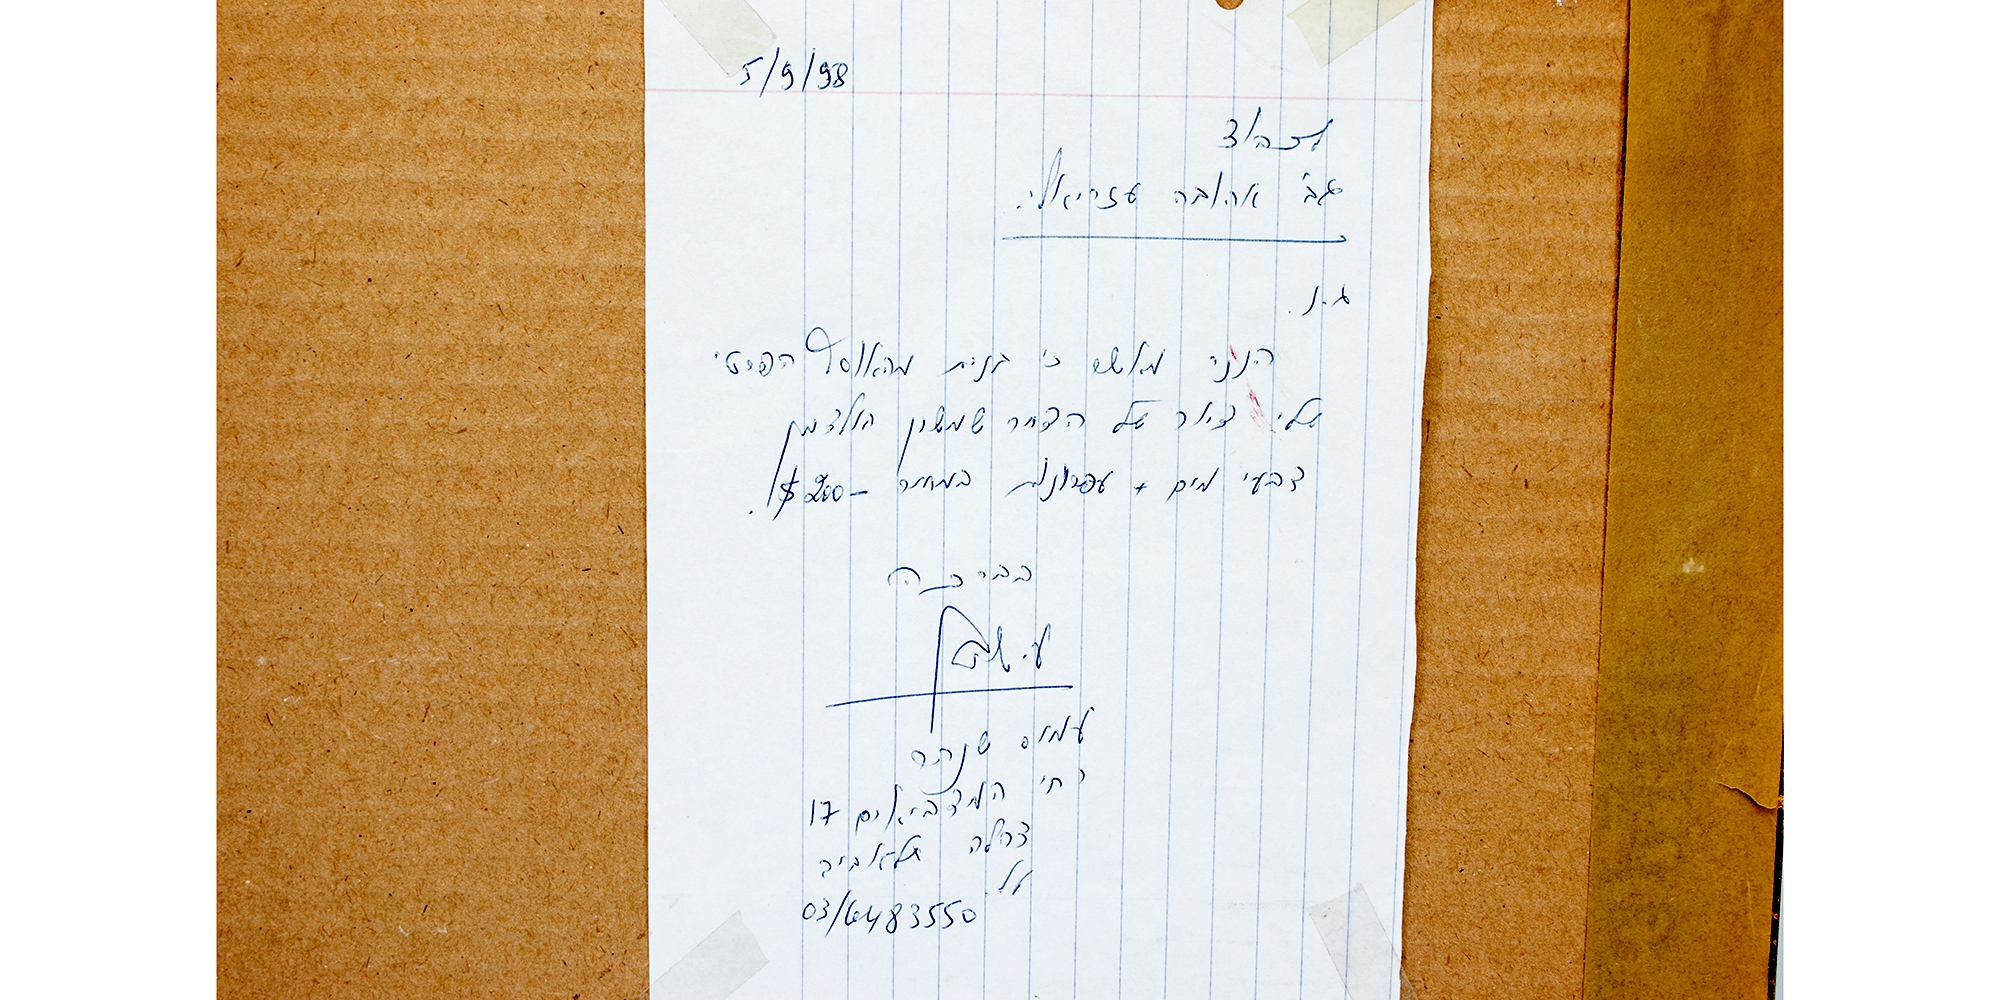 5/9/98
לכבוד
גב' אהובה עזריאלי.
ג.נ.
הנני מאשר כי קנית מהאוסף הפרטי
שלי ציור של הצייר שמשון הולצמן
צבעי מים + עפרונות במחיר 200- $.
בברכה
עמוס שנהר
רח' המצביאים 17
צהלה תל-אביב
טל.
03/6483550